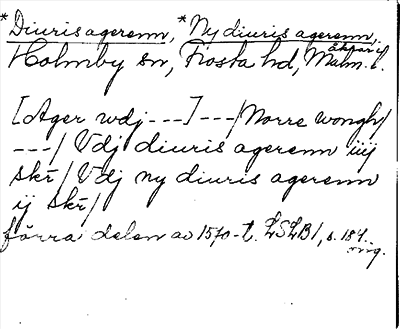 *Diuris agerenn, *Ny diuris agerenn,
Holmby sn, Frosta hd, Malm. l.
Åkrar i/
[Ager wdj ---] ---/ Norre wongh/
---/ Vdj diuris agerenn iiij
skr/ Vdj ny diuris agerenn
ij skr/
förra delen av 1570-t. LSLB1, s. 184.
orig.